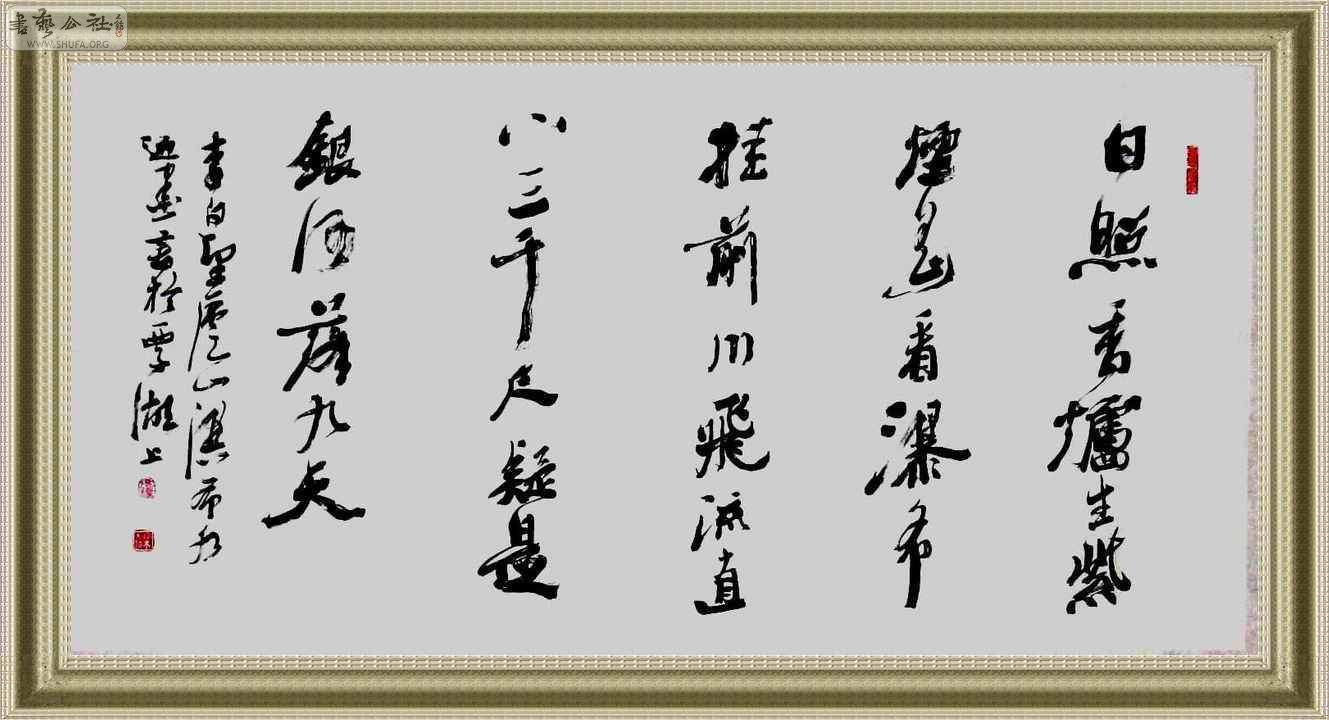 書藝公社
WWW.SHUFA.ORG
日照香爐生紫
煙遙看瀑布
挂前川飛流直
下三千尺疑是
銀河落九天
李白望廬山瀑布水
湖上